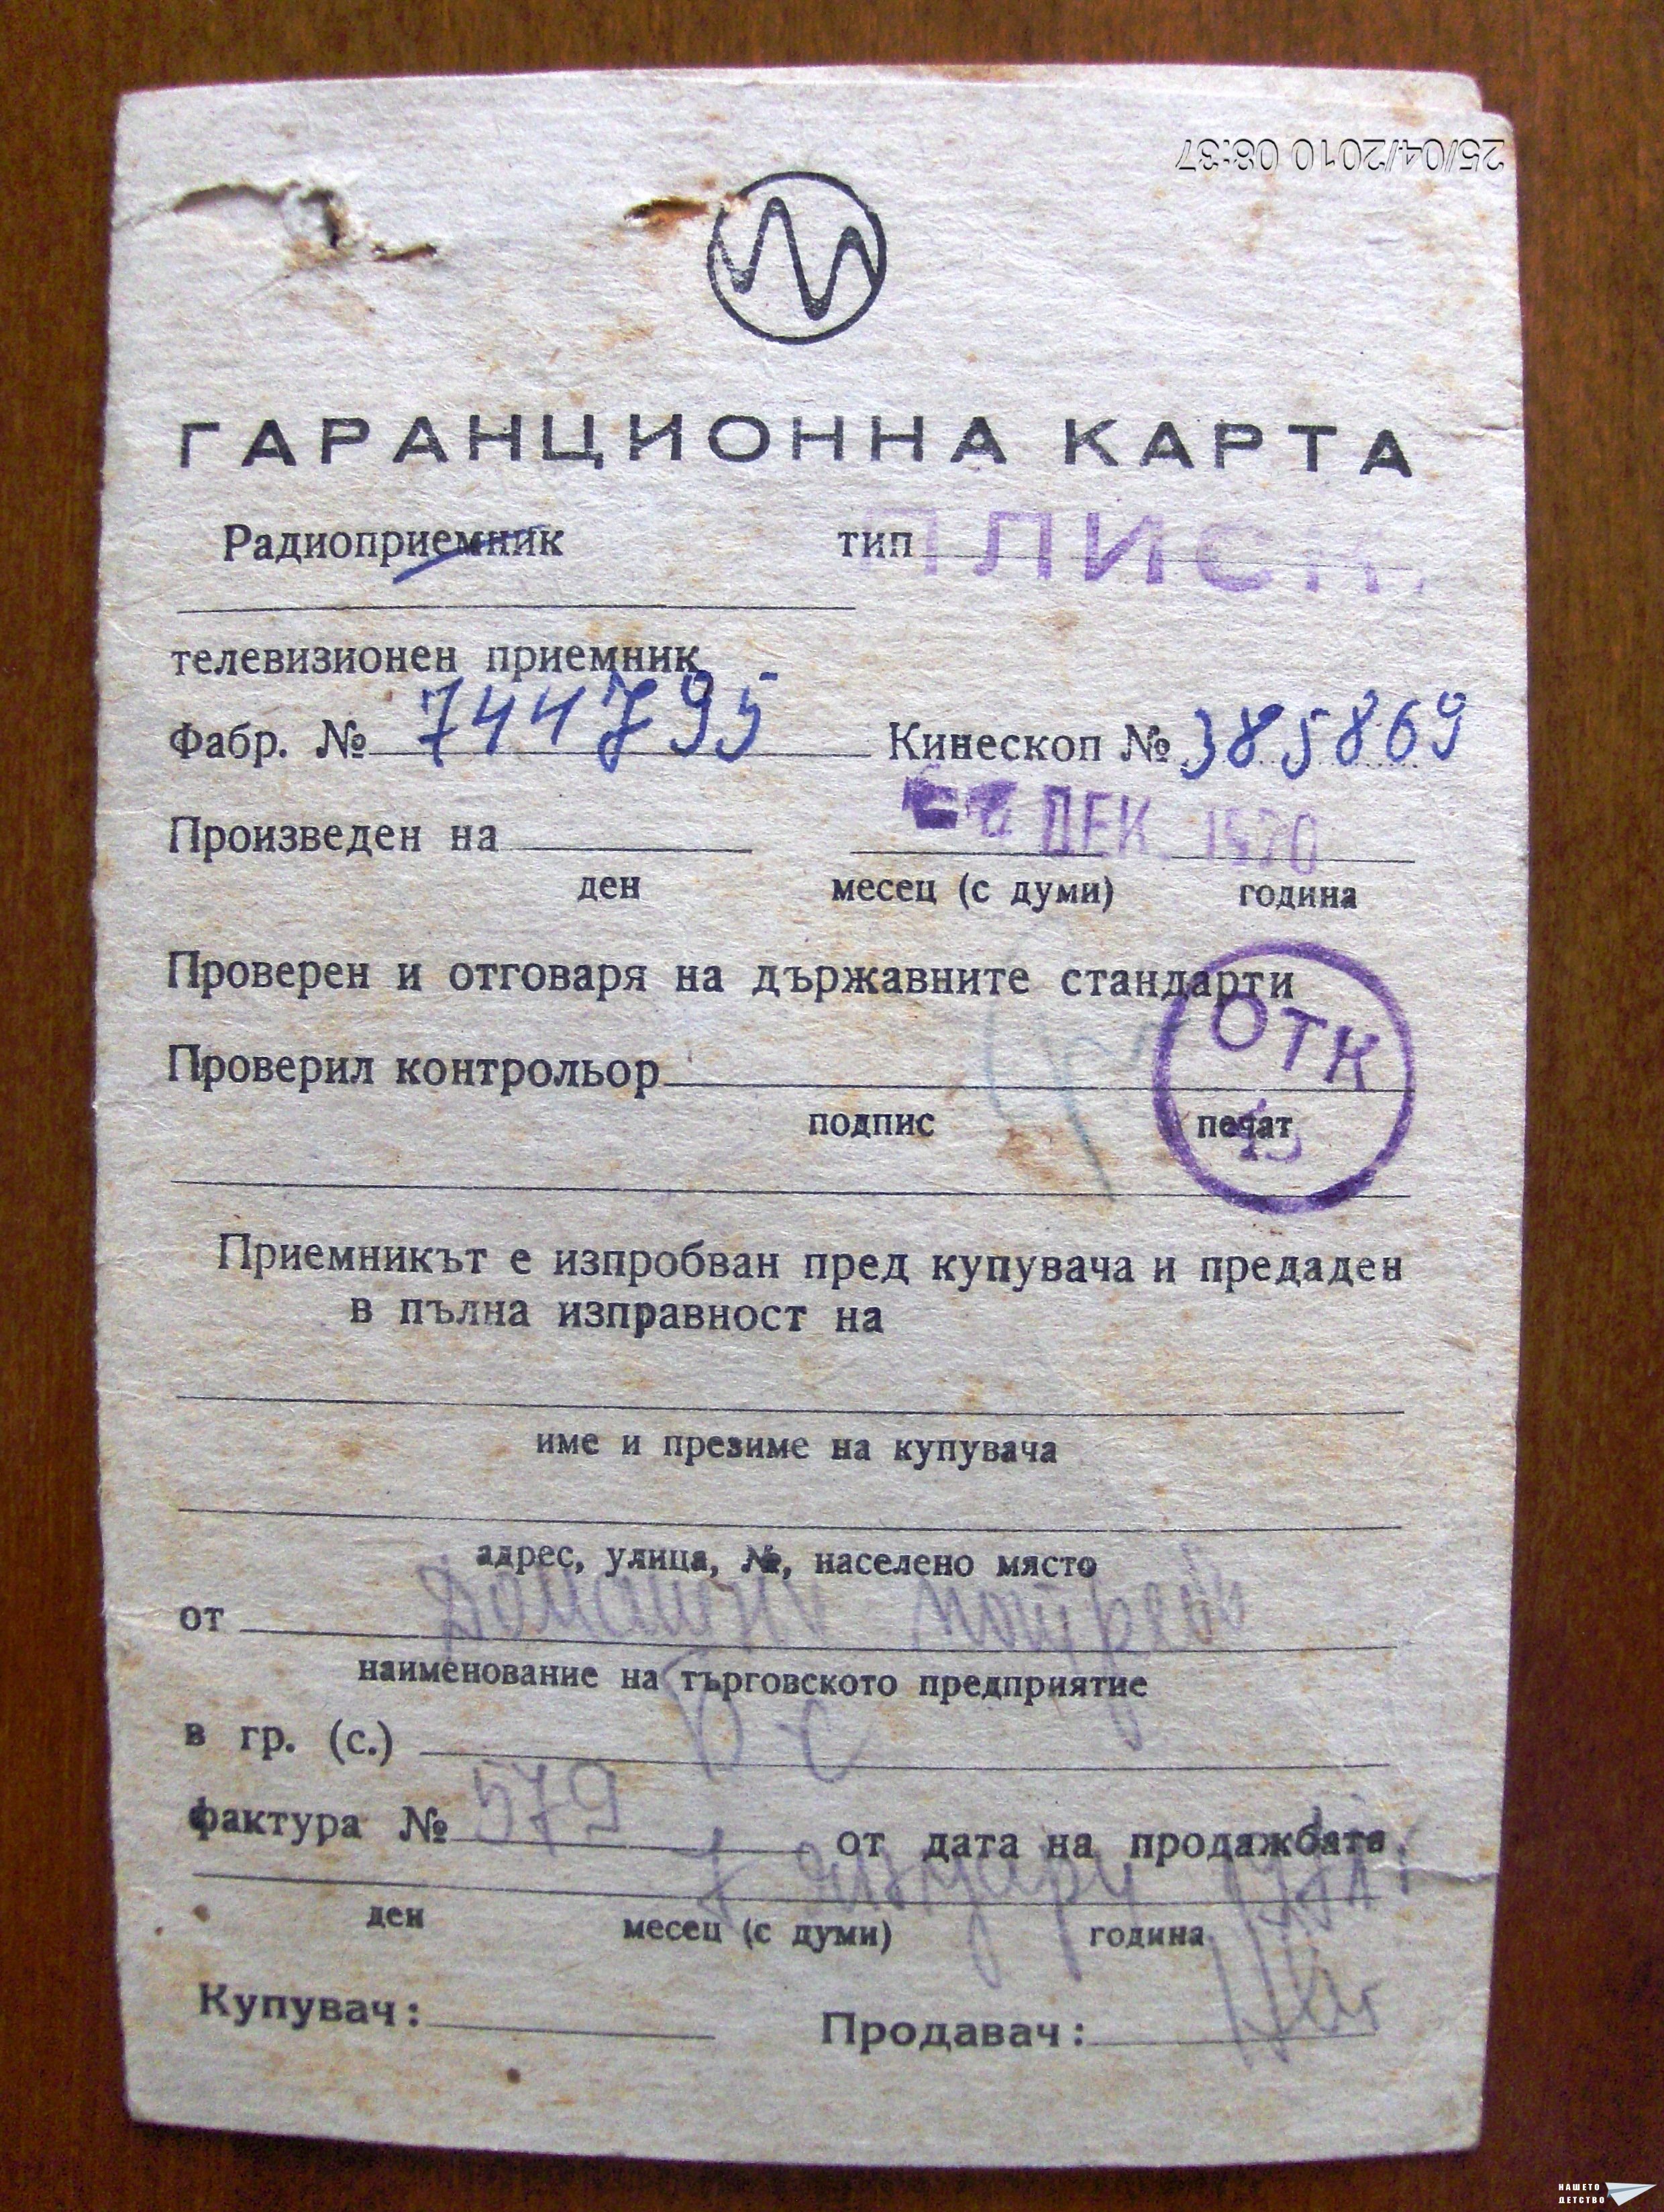 25/04/2010 08:37
ГАРАНЦИОННА КАРТА
Радиоприемник тип ПЛИСК
телевизионен приемник
Фабр. № 744795 Кинескоп № 385869
Произведен на ДЕК. 1970
ден месец (с думи) година
Проверен и отговаря на държавните стандарти
ОТК
Проверил контрольор
подпис печат
Приемникът е изпробван пред купувача и предаден
в пълна изправност на
име и презиме на купувача
адрес, улица, №, населено място
от Домашни потреби
наименование на търговското предприятие
в гр. (с.)
фактура № 579 от дата на продажбата
7 януари
ден месец (с думи) година
Купувач: Продавач:
НАШЕТО
ДЕТСТВО